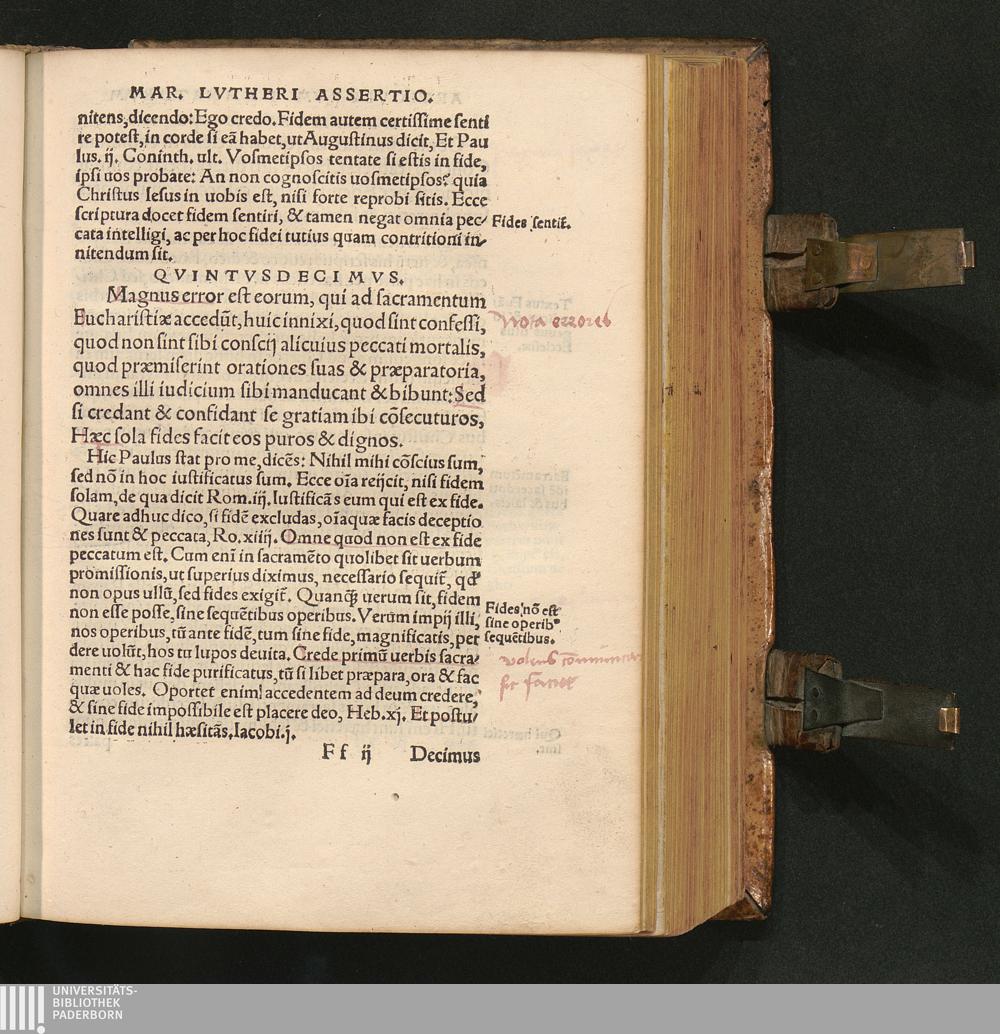 MAR. LVTHERI ASSERTIO.
nitens, dicendo: Ego credo. Fidem autem certissime senti
re potest, in corde si eã habet, ut Augustinus dicit, Et Pau
lus. ij. Coninth. ult. Vosmetipsos tentate si estis in fide,
ipsi uos probate: An non cognoscitis uosmetipsos? quia
Christus Iesus in uobis est, nisi forte reprobi sitis. Ecce
scriptura docet fidem sentiri, & tamen negat omnia pec-
Fides sentit̃.
cata intelligi, ac per hoc fidei tutius quam contritioni in-
nitendum sit.
QVINTVSDECIMVS.
Magnus error est eorum, qui ad sacramentum
Eucharistiæ accedũt, huic innixi, quod sint confessi,
Nota errores
quod non sint sibi conscij alicuius peccati mortalis,
quod præmiserint orationes suas & præparatoria,
omnes illi iudicium sibi manducant & bibunt: Sed
si credant & confidant se gratiam ibi cõsecuturos,
Hæc sola fides facit eos puros & dignos.
Hic Paulus stat pro me, dicẽs: Nihil mihi cõscius sum,
sed nõ in hoc iustificatus sum. Ecce oĩa reijcit, nisi fidem
solam, de qua dicit Rom. iij. Iustificãs eum qui est ex fide.
Quare adhuc dico, si fidẽ excludas, oĩa quæ facis deceptio
nes sunt & peccata, Ro. xiiij. Omne quod non est ex fide
peccatum est. Cum enĩ in sacramẽto quolibet sit uerbum
promissionis, ut superius diximus, necessario sequit̃, qd'
non opus ullũ, sed fides exigit̃. Quanq̃ uerum sit, fidem
non esse posse, sine sequẽtibus operibus. Verum impij illi,
Fides nõ est
sine operibꝰ
sequẽtibus.
nos operibus, tũ ante fidẽ, tum sine fide, magnificatis, per
dere uolũt, hos tu lupos deuita. Crede primũ uerbis sacra-
volens
sic
menti & hac fide purificatus, tũ si libet præpara, ora & fac
quæ uoles. Oportet enim accedentem ad deum credere,
& sine fide impossibile est placere deo, Heb. xj. Et postu-
let in fide nihil hæsitãs. Iacobi. j.
Ff ij Decimus
UNIVERSITÄTS-
BIBLIOTHEK
PADERBORN